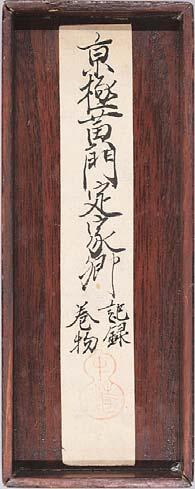 京極黄門定家卿
記録
巻物